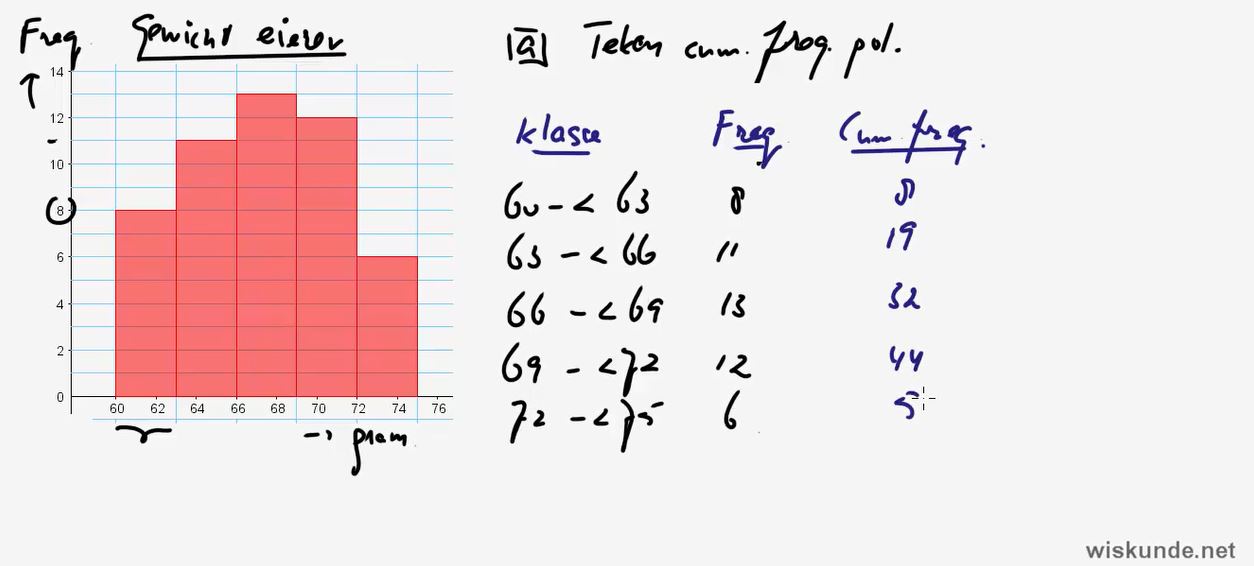 Freq Gewicht eieren
a Teken cum. freq. pol.
klasse Freq Cum freq.
60 - < 63 8 8
63 - < 66 11 19
66 - < 69 13 32
69 - < 72 12 44
72 - < 75 6 5
14
12
10
8
6
4
2
0
60 62 64 66 68 70 72 74 76
→ gram
wiskunde.net